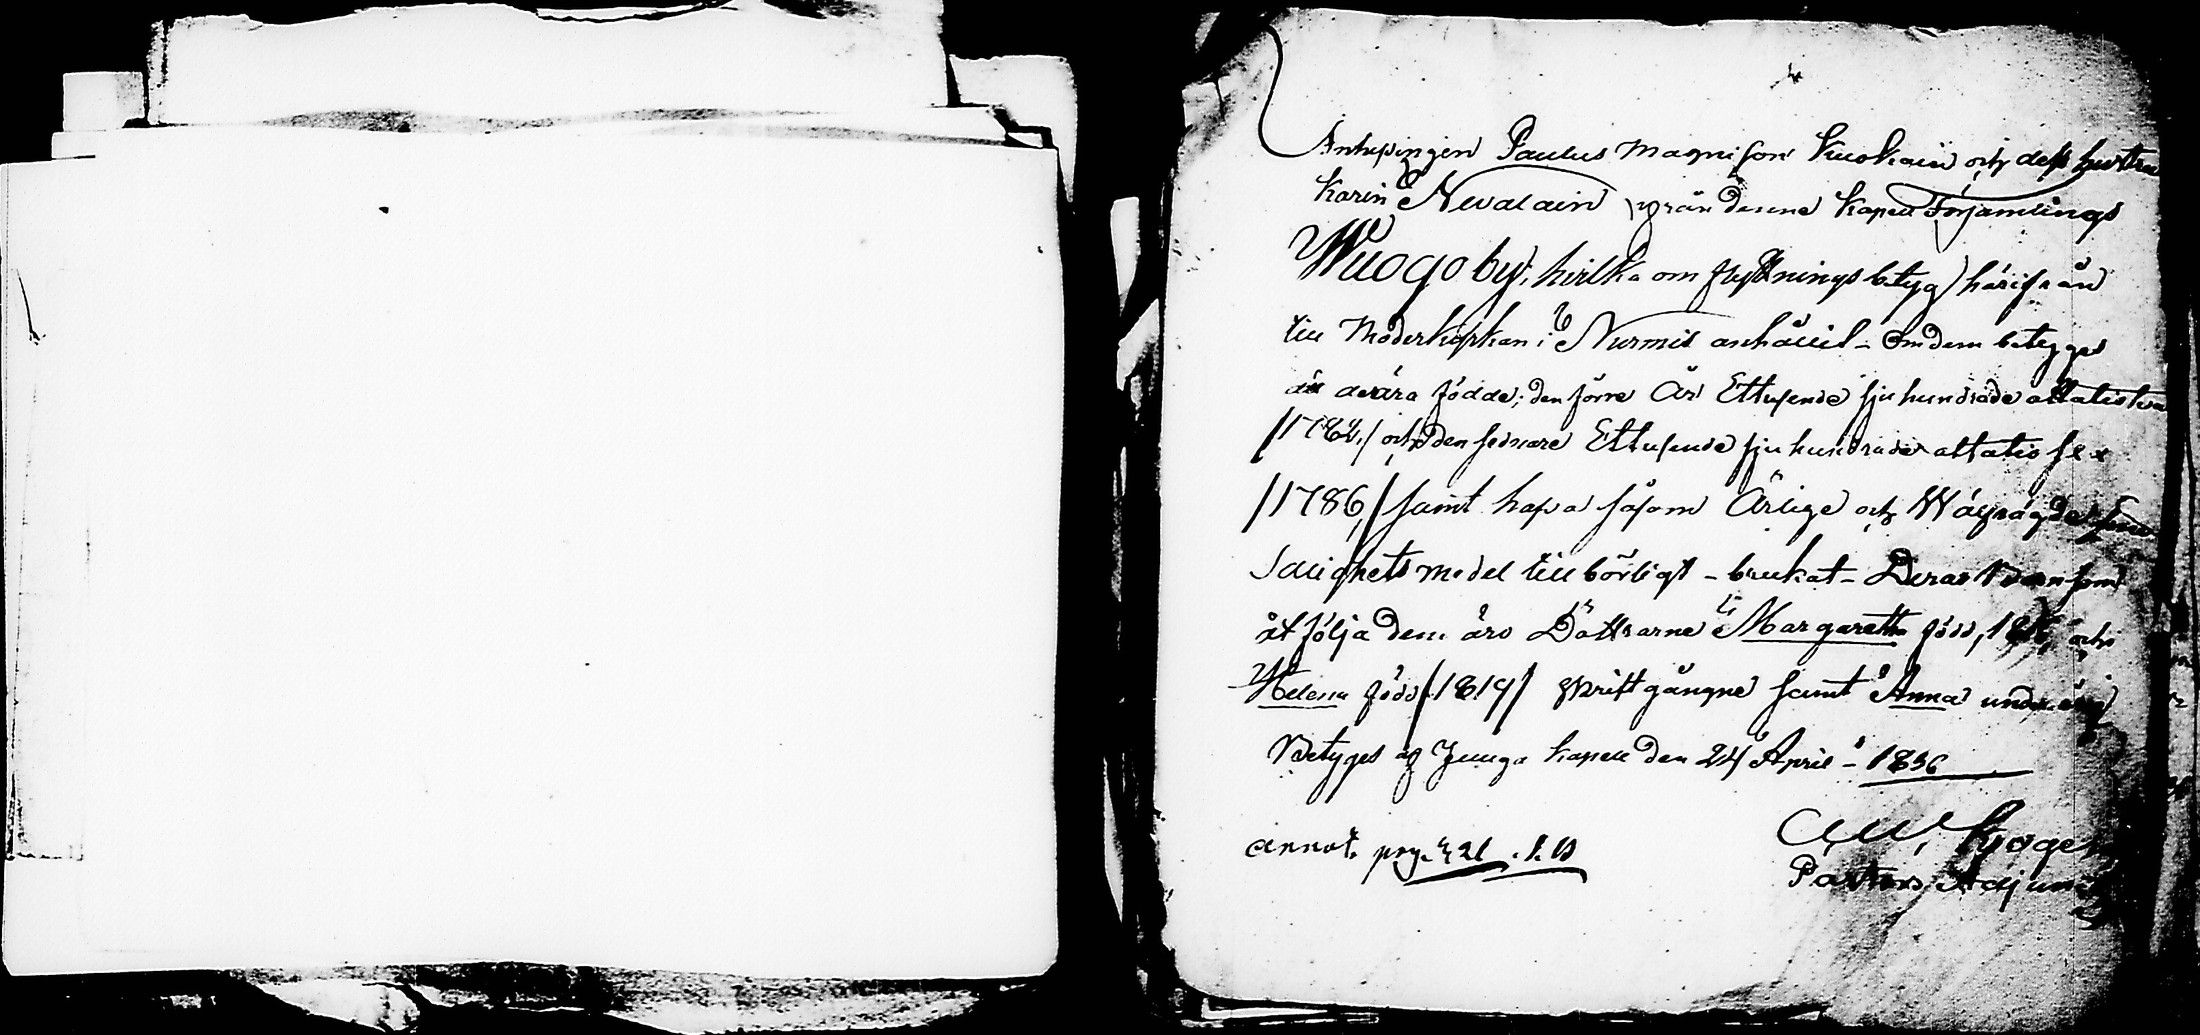 Inhysingen Paulus Magnusson Kuokain och dess hustru
Karin Nevalain från denne Kapell Församlings
Wuogo by, hvilka om flyttnings betyg härifrån
till Moderkyrkan i Nurmis anhållit - Om dem betygges
att de ära födde; den förre År Ettusende sju hundrade åttatio två
/1782,/ och den sednare Ettusende sju hundrade åttatio sex
/1786,/ samt hafva såsom Ärlige och Wäl
Salighets medel tillbörligt - brukat - Deras Barn som
åtfölja dem äro Döttrarne Margaretha född, och
Helena född /1819/ skriftgångne samt Anna underårig
Betyges af Juuga Kapell den 24 April - 1836
annot. pag. 421
Pastors Adjunct